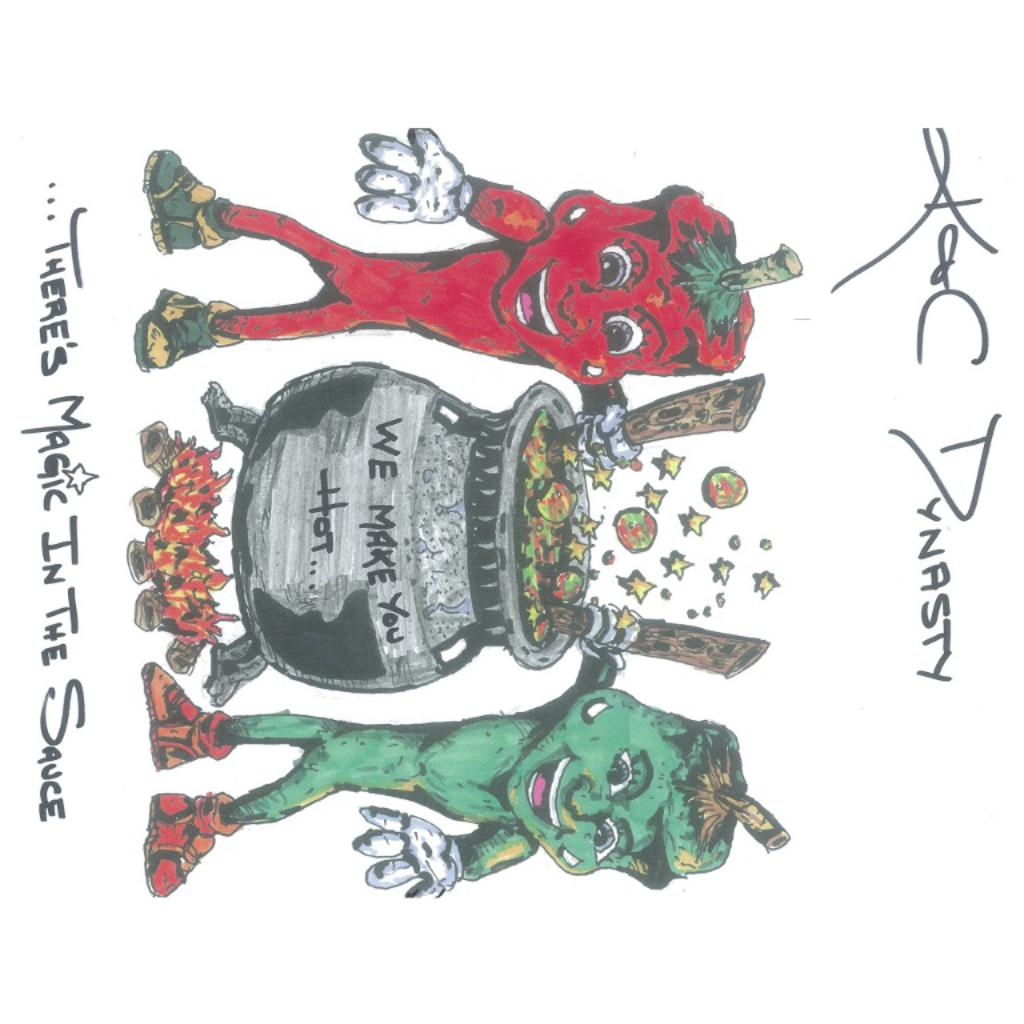 K&C DYNASTY
WE MAKE YOU
HOT...
...THERE'S MAGIC IN THE SAUCE